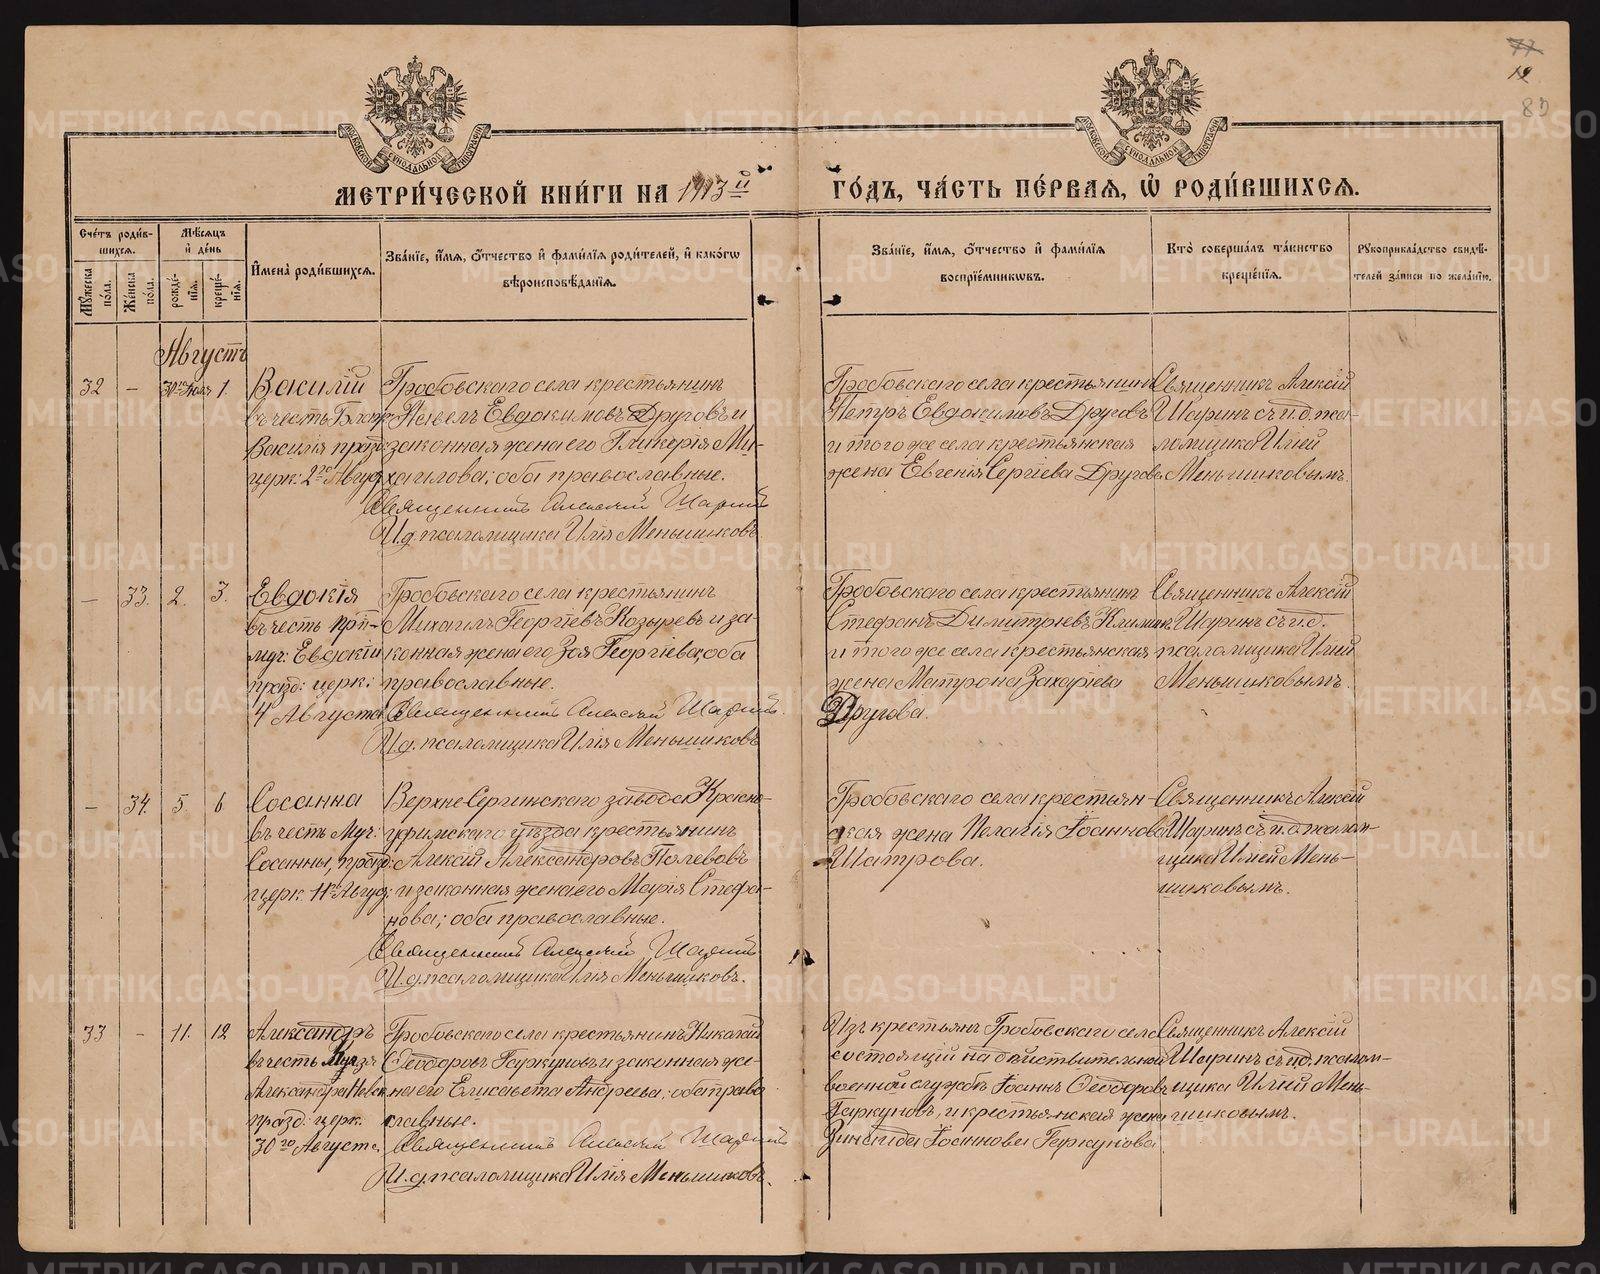 77
12
83
МОСКОВСКОЙ СѴНОДАЛЬНОЙ ТИПОГРАФІИ
МОСКОВСКОЙ СѴНОДАЛЬНОЙ ТИПОГРАФІИ
МЕТРИ́ЧЕСКОЙ КНИ́ГИ НА 1913 й
ГО́ДЪ, ЧА́СТЬ ПЕ́РВАѦ, Ѡ҆ РОДИ́ВШИХСѦ.
Сче́тъ роди́в-
шихсѧ.
Мꙋжеска по́ла.
Же́нска по́ла.
Мѣ́сѧцъ
и҆ де́нь
рожде́-
нїѧ.
креще́-
нїѧ.
И҆мена̀ роди́вшихсѧ.
Зва́нїе, и҆́мѧ, ѻ҆́тчество и҆ фами́лїѧ роди́телей, и҆ како́гѡ
вѣроисповѣ́данїѧ.
Зва́нїе, и҆́мѧ, ѻ҆́тчество и҆ фами́лїѧ
воспрїе́мникѡвъ.
Кто̀ соверша́лъ та́инство
креще́нїѧ.
Рꙋкоприкла́дство свидѣ́-
телей за́писи по жела́нїю.
Августъ
32 — 30го Іюль 1.
Василій
въ честь Блаж.
Василія празд.
церк: 2го Август
Гробовскаго села крестьянинъ
Павелъ Евдокимовъ Друговъ и
законная жена его Гликерія Ми-
хаилова; оба православные.
Священникъ Алексій Шаринъ
И.д. псаломщика Илія Меньшиковъ
Гробовскаго села крестьянинъ
Петръ Евдокимовъ Друговъ
и того же села крестьянская
жена Евгенія Сергіева Другова
Священникъ Алексій
Шаринъ съ и.д. пса-
ломщика Иліей
Меньшиковымъ.
— 33. 2. 3.
Евдокія
въ честь прп-
муч: Евдокіи
празд: церк:
4 Августа
Гробовскаго села крестьянинъ
Михаилъ Георгіевъ Козыревъ и за-
конная жена его Зоя Георгіева, оба
православные.
Священникъ Алексій Шаринъ.
И.д. псаломщика Илія Меньшиковъ
Гробовскаго села крестьянинъ
Стефанъ Димитріевъ Климин.
и того же села крестьянская
жена Матрона Захаріева
Другова.
Священникъ Алексій
Шаринъ съ и.д.
псаломщика Иліей
Меньшиковымъ.
— 34. 5. 6
Сосанна
въ честь Муч:
Сосанны, празд:
церк: 11го Август:
Верхне-Сергинскаго завода Красно-
уфимскаго уѣзда крестьянинъ
Алексій Александровъ Полевовъ
и законная жена его Марія Стефа-
нова; оба православные.
Священникъ Алексій Шаринъ
И.д. псаломщика Илія Меньшиковъ.
Гробовскаго села крестьян-
ская жена Пелагія Іоаннова
Шатрова.
Священникъ Алексій
Шаринъ съ и.д. псалом-
щика Иліей Мень-
шиковымъ.
33 — 11. 12
Александръ
въ честь
Александра Невск
празд: церк.
30го Августа
Гробовскаго села крестьянинъ Николай
Ѳеодоровъ Гаркуновъ и законная же-
на его Елисавета Андреева; оба право
славные.
Священникъ Алексій Шаринъ
И.д. псаломщика Илія Меньшиковъ.
Изъ крестьянъ Гробовскаго села
состоящій на дѣйствительной
военной службѣ Іоаннъ Ѳеодоровъ
Гаркуновъ, и крестьянская жена
Зинаида Іоаннова Гаркунова
Священникъ Алексій
Шаринъ съ и.д. псалом-
щика Иліей Мень-
шиковымъ.
METRIKI.GASO-URAL.RU